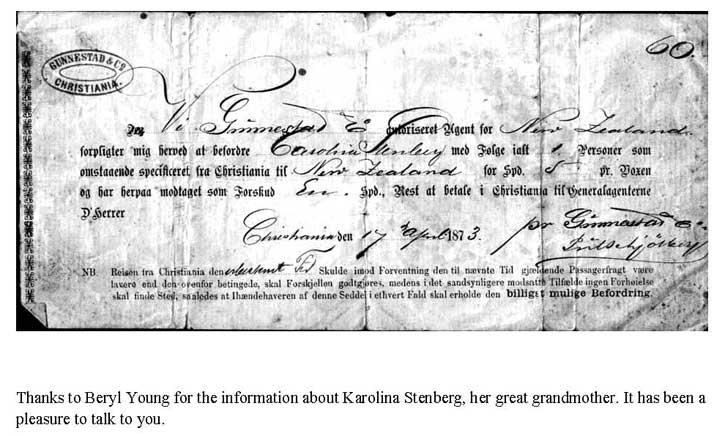 GUNNESTAD & Co.
CHRISTIANIA.
60.
Vi Gunnestad & Co autoriseret Agent for New Zealand
forpligter mig herved at befordre Carolina Stenberg med Følge ialt 1 Personer som
omstaaende specificeret fra Christiania til New Zealand for Spd. 5 pr. Voxen
og har herpaa modtaget som Forskud En. Spd., Rest at betale i Christiania til Generalagenterne
D'Herrer
Christiania den 17 April 1873. pr Gunnestad & Co
NB. Reisen fra Christiania den Tid Skulde imod Forventning den til nævnte Tid gjældende Passagerfragt være
lavere end den ovenfor betingede, skal Forskjellen godtgjøres, medens i det sandsynligere modsatte Tilfælde ingen Forhøielse
skal finde Sted, saaledes at Ihændehaveren af denne Seddel i ethvert Fald skal erholde den billigst mulige Befordring.
Thanks to Beryl Young for the information about Karolina Stenberg, her great grandmother. It has been a
pleasure to talk to you.